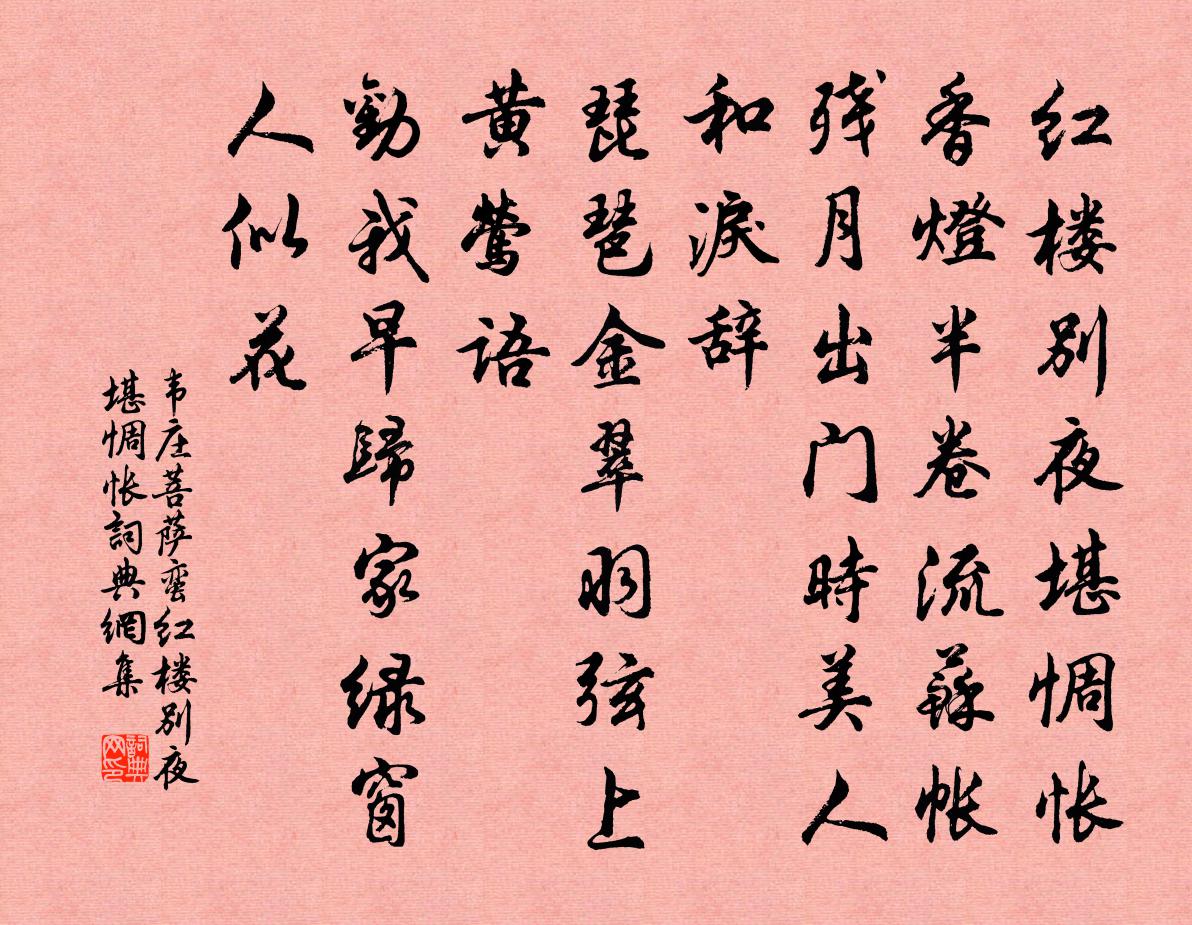 红楼别夜堪惆怅
香燈半卷流蘇帐
残月出门時美人
和淚辞
琵琶金翠羽弦上
黄莺語
勸我早歸家绿窗
人似花
韦庄菩萨蛮红楼别夜
堪惆怅詞典網集
詞典网印